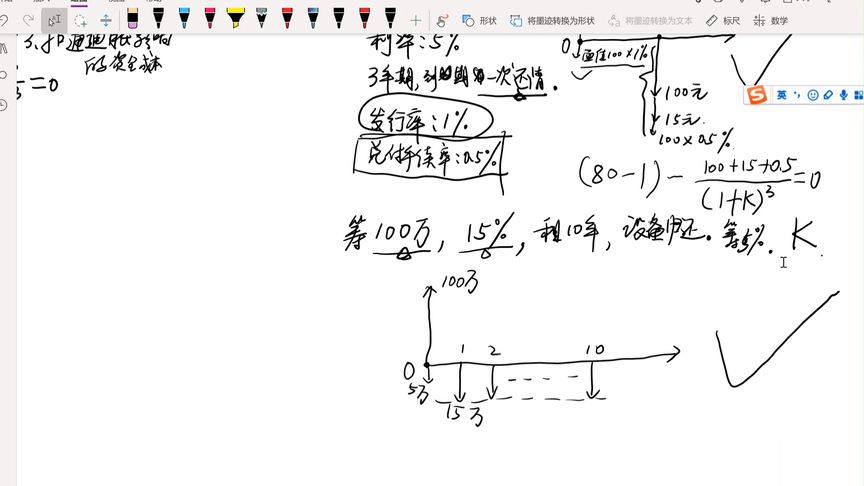 形状 将墨迹转换为形状 将墨迹转换为文本 标尺 数学
3.扣通通胀影响
的资金成本
=0
利率:5%
3年期,到期一次还清。
发行率:1%
兑付手续率:0.5%
0
面值100×1%
100元
15元.
100×0.5%.
英
(80-1) - (100+15+0.5)/(1+K)^3 =0
筹100万, 15%, 租10年, 设备归还。筹5%. K
100万
0 1 2 10
5万
15万